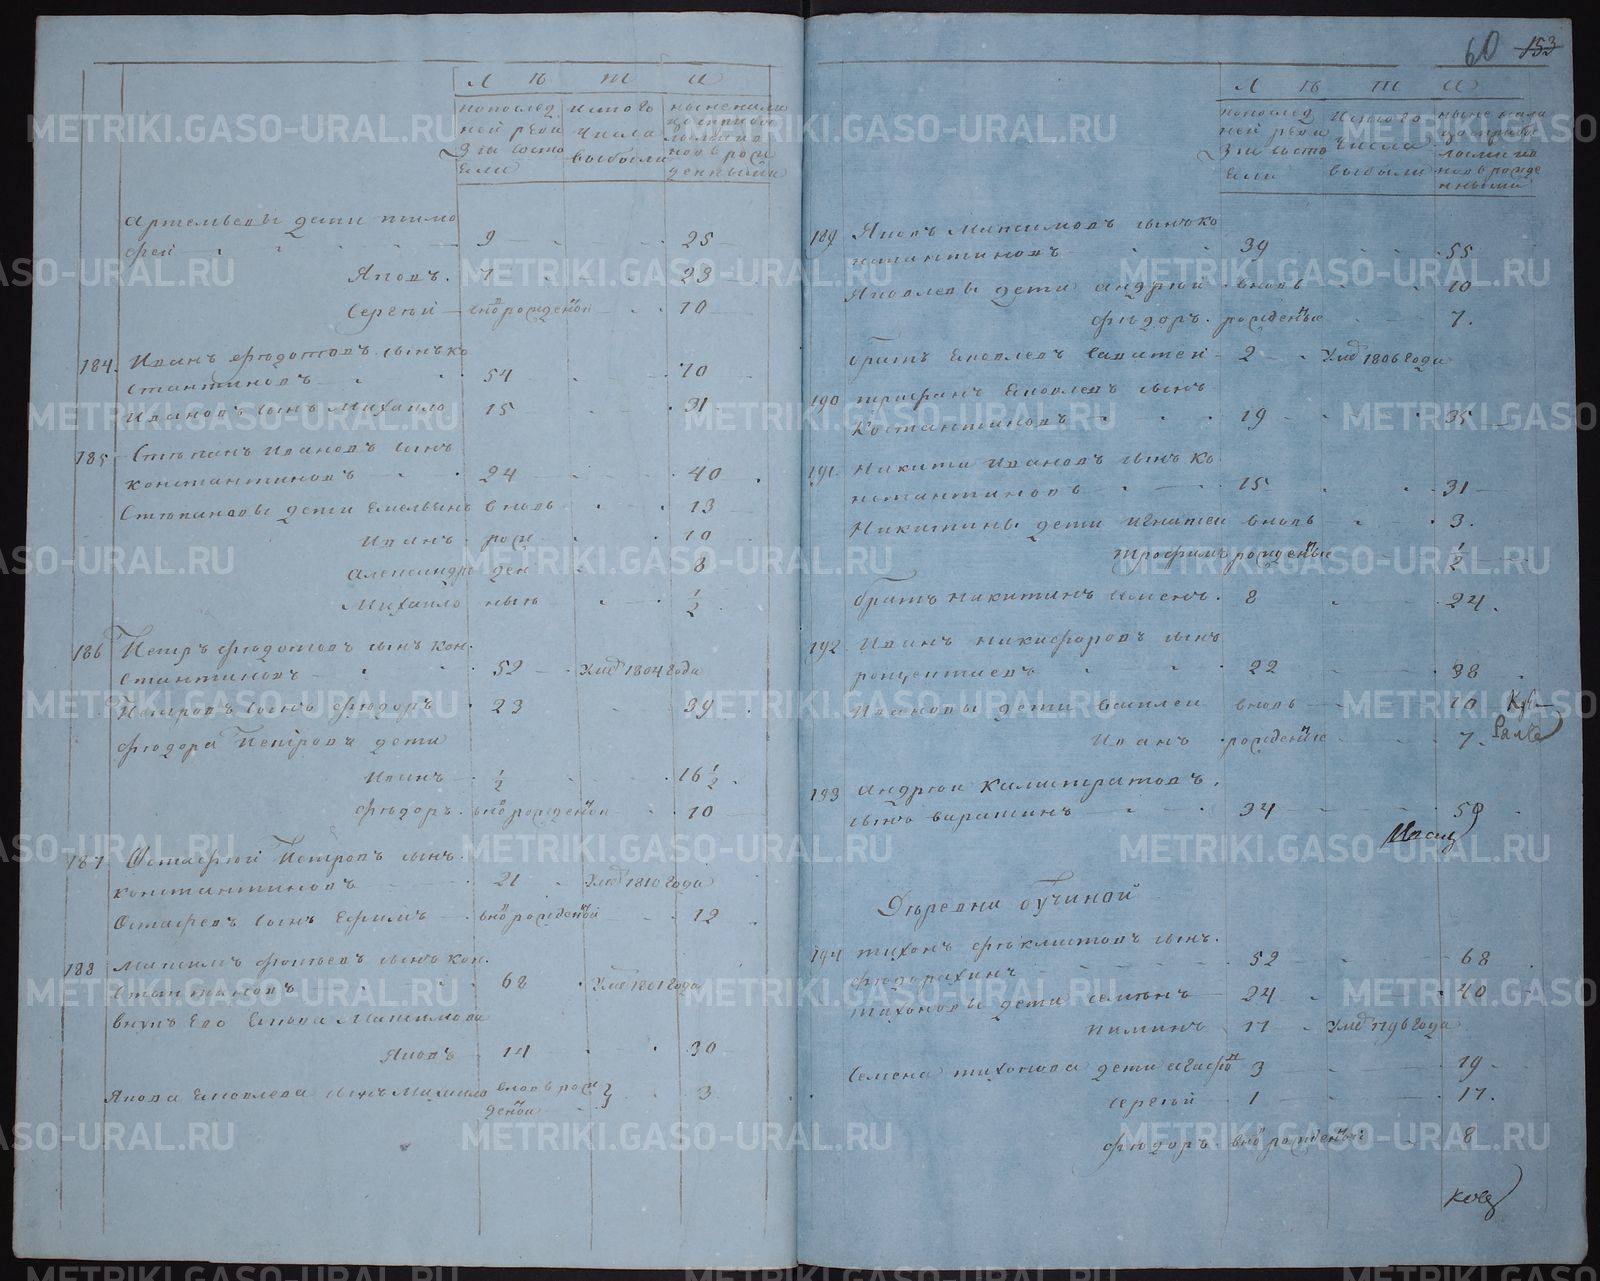 Л ѣ т а
попослед
ней реви
зіи состо
яли
изтого
числа
выбыли
Артемьевы дети тимо
фей 9 25
Яковъ. 7 23
Сергѣй вновь рожденой 10
184. Иванъ Федотовъ сынъ ко
стантиновъ 54 70
Ивановъ сынъ Михайло 15 31
185 Степанъ Ивановъ сынъ
константиновъ 24 40
Степановы дети Емельянъ вновь 13
Иванъ рож 10
Александръ ден 8
Михайло ныя 1/2
186 Петръ Федотовъ сынъ кон
стантиновъ 52 Умре 1804 года
Петровъ сынъ Федоръ 23 39
Федора Петрова дети
Иванъ 1/2 16 1/2
Федоръ вновь рожденой 10
187 Остафей Петровъ сынъ
константиновъ 21 Умре 1810 года
Остафьевъ сынъ Ефимъ вновь рожденой 12
188 Максимъ сынъ кон
стантиновъ 68 Умре 1801 года
внукъ Ево Якова Максимова
Яковъ 14 30
Якова Яковлева сынъ вновь рож
деной 3
60 153
Л ѣ т а
попослед
ней реви
зіи состо
яли
изтого
числа
выбыли
189 Яковъ Максимовъ сынъ ко
нстантиновъ 39 55
Яковлевы дети андрей вновь 10
Федоръ. рожденые 7.
братъ Яковлевъ Савател 2 Умре 1806 года
190 трифанъ Яковлевъ сынъ
Костантиновъ 19 35
191. Никита Ивановъ сынъ ко
нстантиновъ 15 31
Никитины дети игнатей вновь 3.
трофимъ рожденые 1/2
братъ никитинъ 8 24.
192 Иванъ никифоровъ сынъ
22 38
Ивановы дети василей вновь 10
Иванъ рожденые 7.
193 андрей Калистратовъ
сынъ варакинъ 34 50
Деревни бучиной
194 тихонъ Феклистовъ сынъ
52 68
тихоновы дети семенъ 24 40
пиминъ 17 Умре 1796 года
Семена тихонова дети агафо 3 19
сергей 1 17.
Федоръ вновь рожденый 8
METRIKI.GASO-URAL.RU